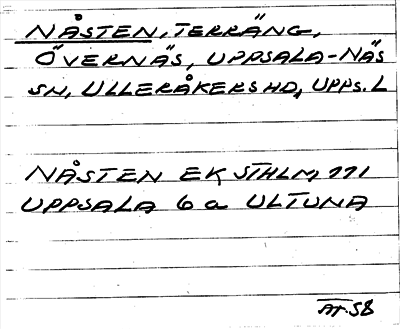 NÅSTEN, TERRÄNG,
ÖVERNÄS, UPPSALA-NÄS
SN, ULLERÅKERS HD, UPPS. L
NÅSTEN EK STHLM 111
UPPSALA 6 a ULTUNA
AT. 58